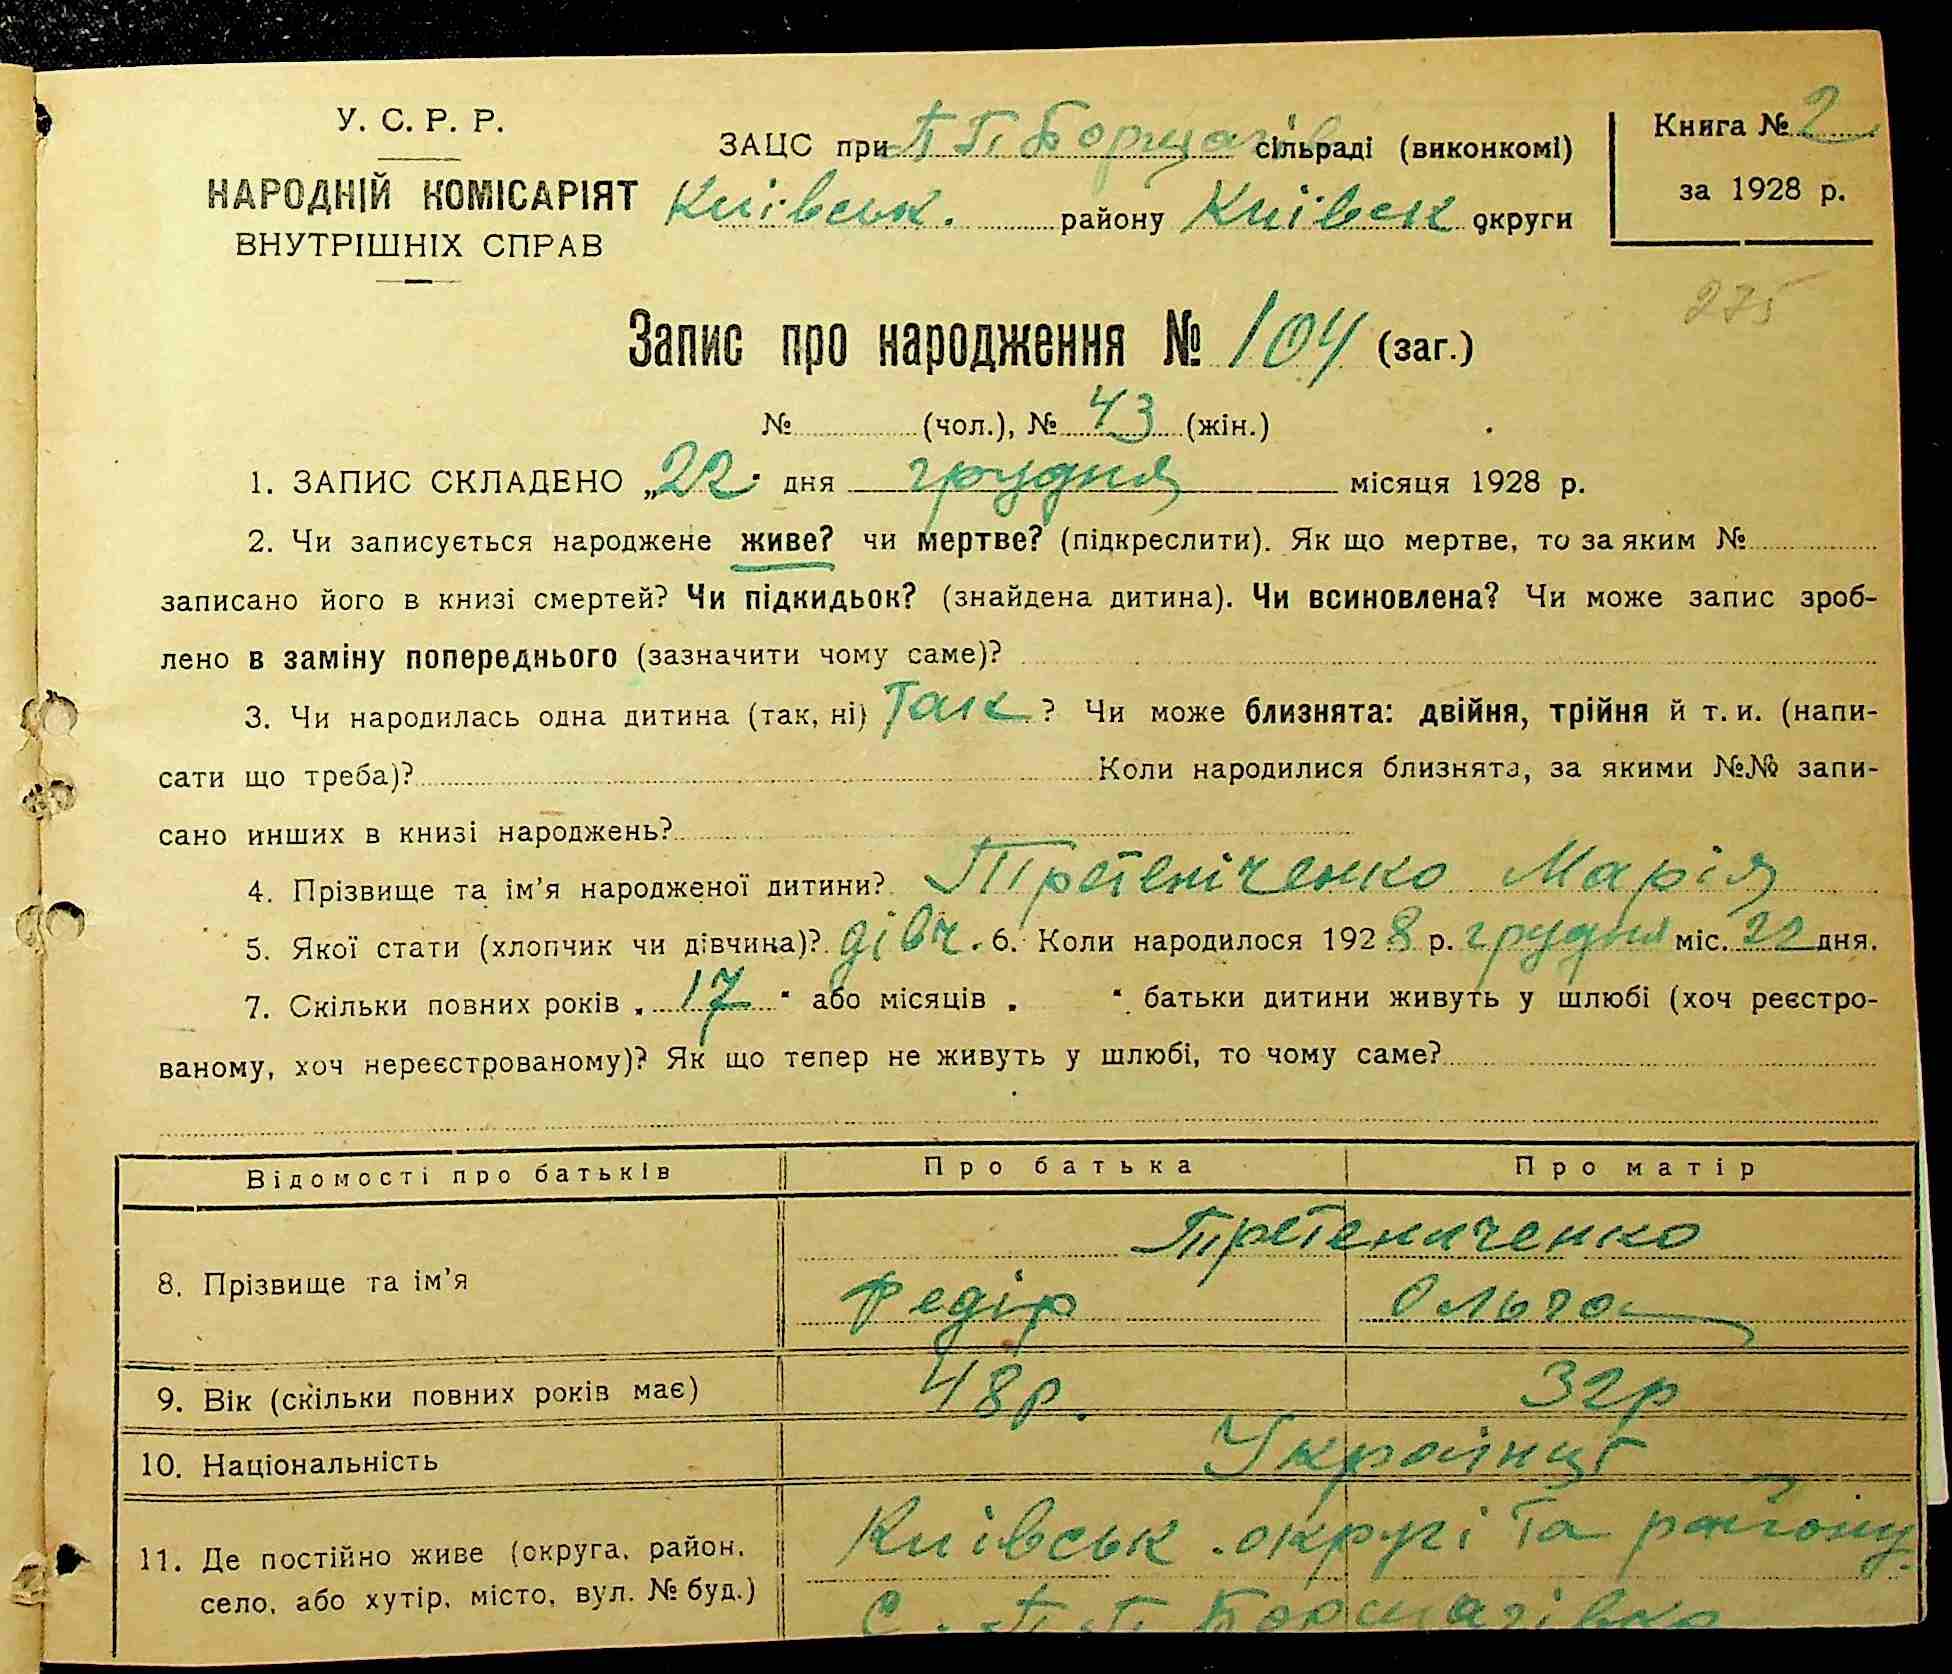 У. С. Р. Р.
НАРОДНІЙ КОМІСАРІЯТ
ВНУТРІШНІХ СПРАВ
ЗАЦС при П П Борщагів сільраді (виконкомі)
Київськ. району Київск округи
Книга № 2
за 1928 р.
275
Запис про народження № 104 (заг.)
№ (чол.), № 43 (жін.)
1. ЗАПИС СКЛАДЕНО „22" дня грудня місяця 1928 р.
2. Чи записується народжене живе? чи мертве? (підкреслити). Як що мертве, то за яким №
записано його в книзі смертей? Чи підкидьок? (знайдена дитина). Чи всиновлена? Чи може запис зроб-
лено в заміну попереднього (зазначити чому саме)?
3. Чи народилась одна дитина (так, ні) Так ? Чи може близнята: двійня, трійня й т. и. (напи-
сати що треба)? Коли народилися близнята, за якими №№ запи-
сано инших в книзі народжень?
4. Прізвище та ім'я народженої дитини? Претеніченко Марія
5. Якої стати (хлопчик чи дівчина)? дівч. 6. Коли народилось 1928 р. грудня міс. 22 дня.
7. Скільки повних років „ 17 " або місяців „ " батьки дитини живуть у шлюбі (хоч реєстро-
ваному, хоч нереєстрованому)? Як що тепер не живуть у шлюбі, то чому саме?
Відомості про батьків Про батька Про матір
Претениченко
8. Прізвище та ім'я Федір Ольга
9. Вік (скільки повних років має) 48р. 32р
10. Національність Українці
11. Де постійно живе (округа, район, Київськ. округі та району
село, або хутір, місто, вул. № буд.) С. П. П. Борщагівка